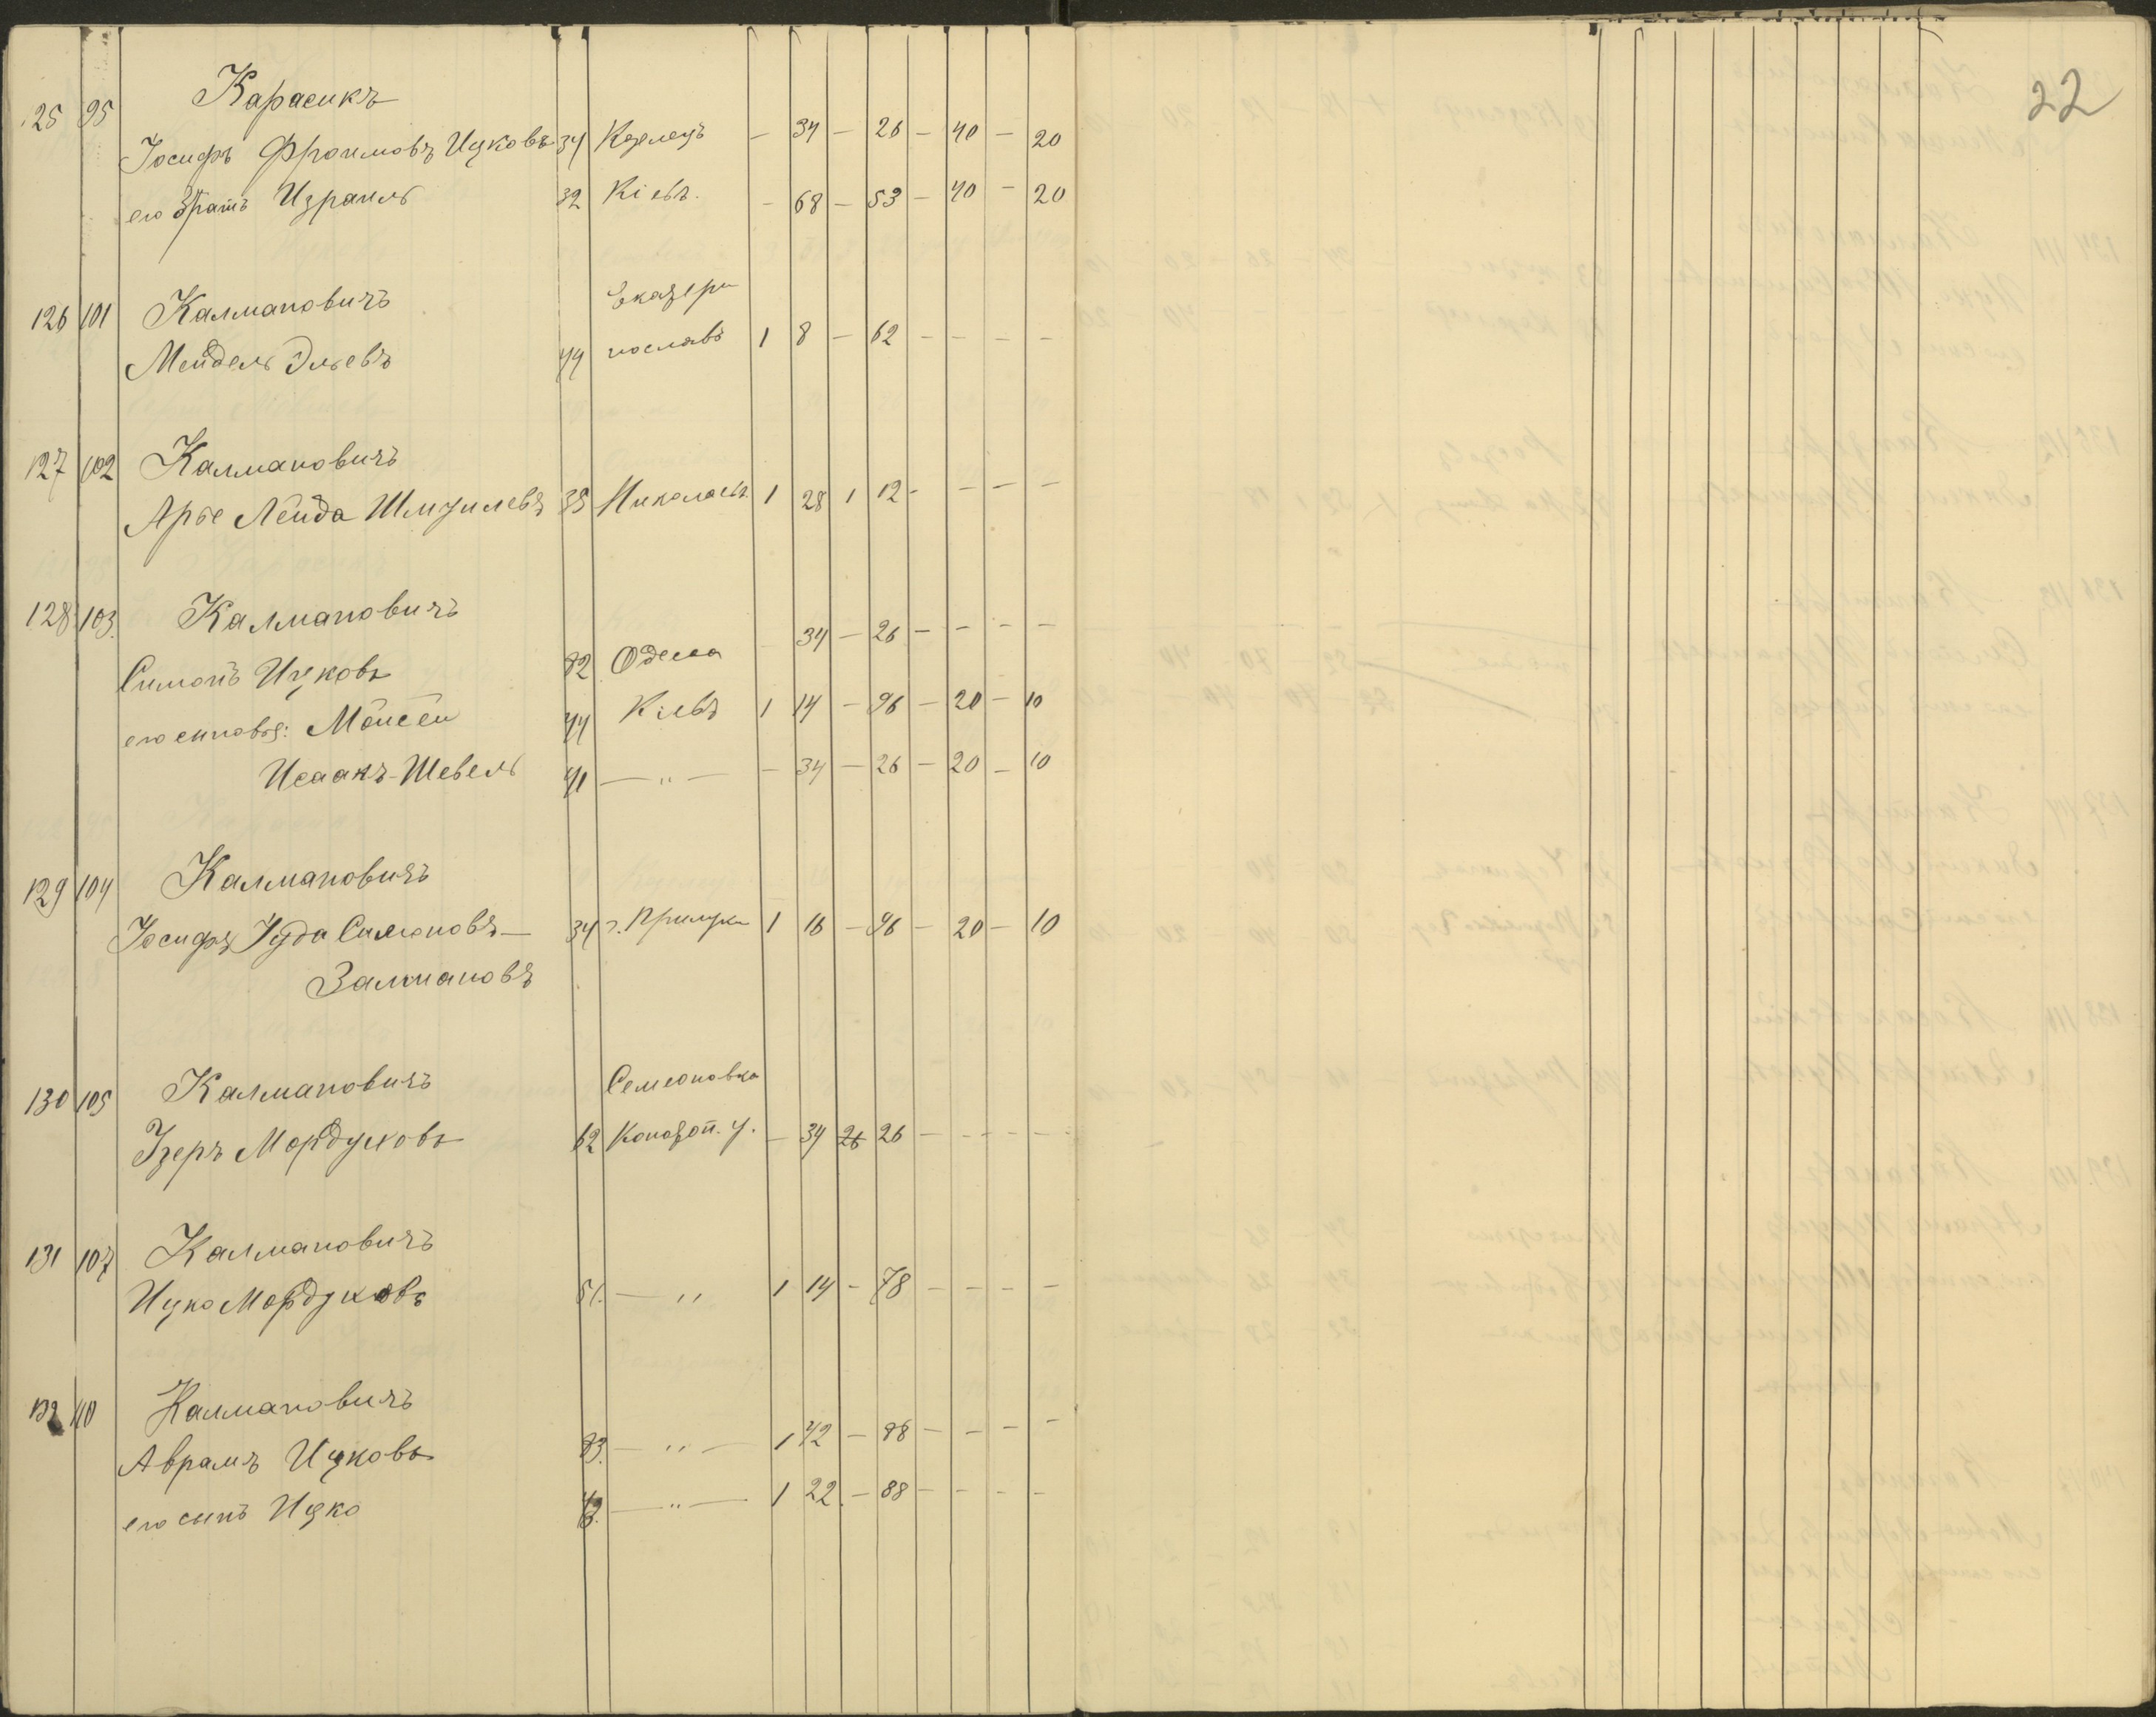 22
125 95 Карасикъ
Іосифъ Фроимовъ Ицковъ 34 Козелецъ — 34 — 26 — 40 — 20
его братъ Израиль 32 Кіевъ. — 68 — 53 — 40 — 20
Екатери
126 101 Калмановичъ
Мендель Эльевъ 44 нославъ 1 8 — 62 — — — —
127 102 Калмановичъ
Арье Лейба 35 Николаевъ 1 28 1 12 - — — —
128 103. Калмановичъ
Симонъ Ицковъ 82 Одесса 34 — 26 — — — —
его сыновья: Мойсей 44 Кіевъ 1 14 — 96 — 20 — 10
Исаакъ-Шевель 41 — " — — 34 — 26 — 20 — 10
129 104 Калмановичъ
Іосифъ Іуда Симоновъ — 34 г. Прилуки 1 16 — 96 — 20 — 10
Залмановъ
Семеновка
130 105 Калмановичъ
Мордуховъ 62 Конотоп. у. — 34 26 26 — — — —
131 107 Калмановичъ
Ицко Мордуховъ 51. — " 1 14 — 78 — — — —
132 110 Калмановичъ
Аврамъ Ицковъ 83. — " — 1 42 — 98 — — — —
его сынъ Ицко 43. — " — 1 22. — 88 — — — —